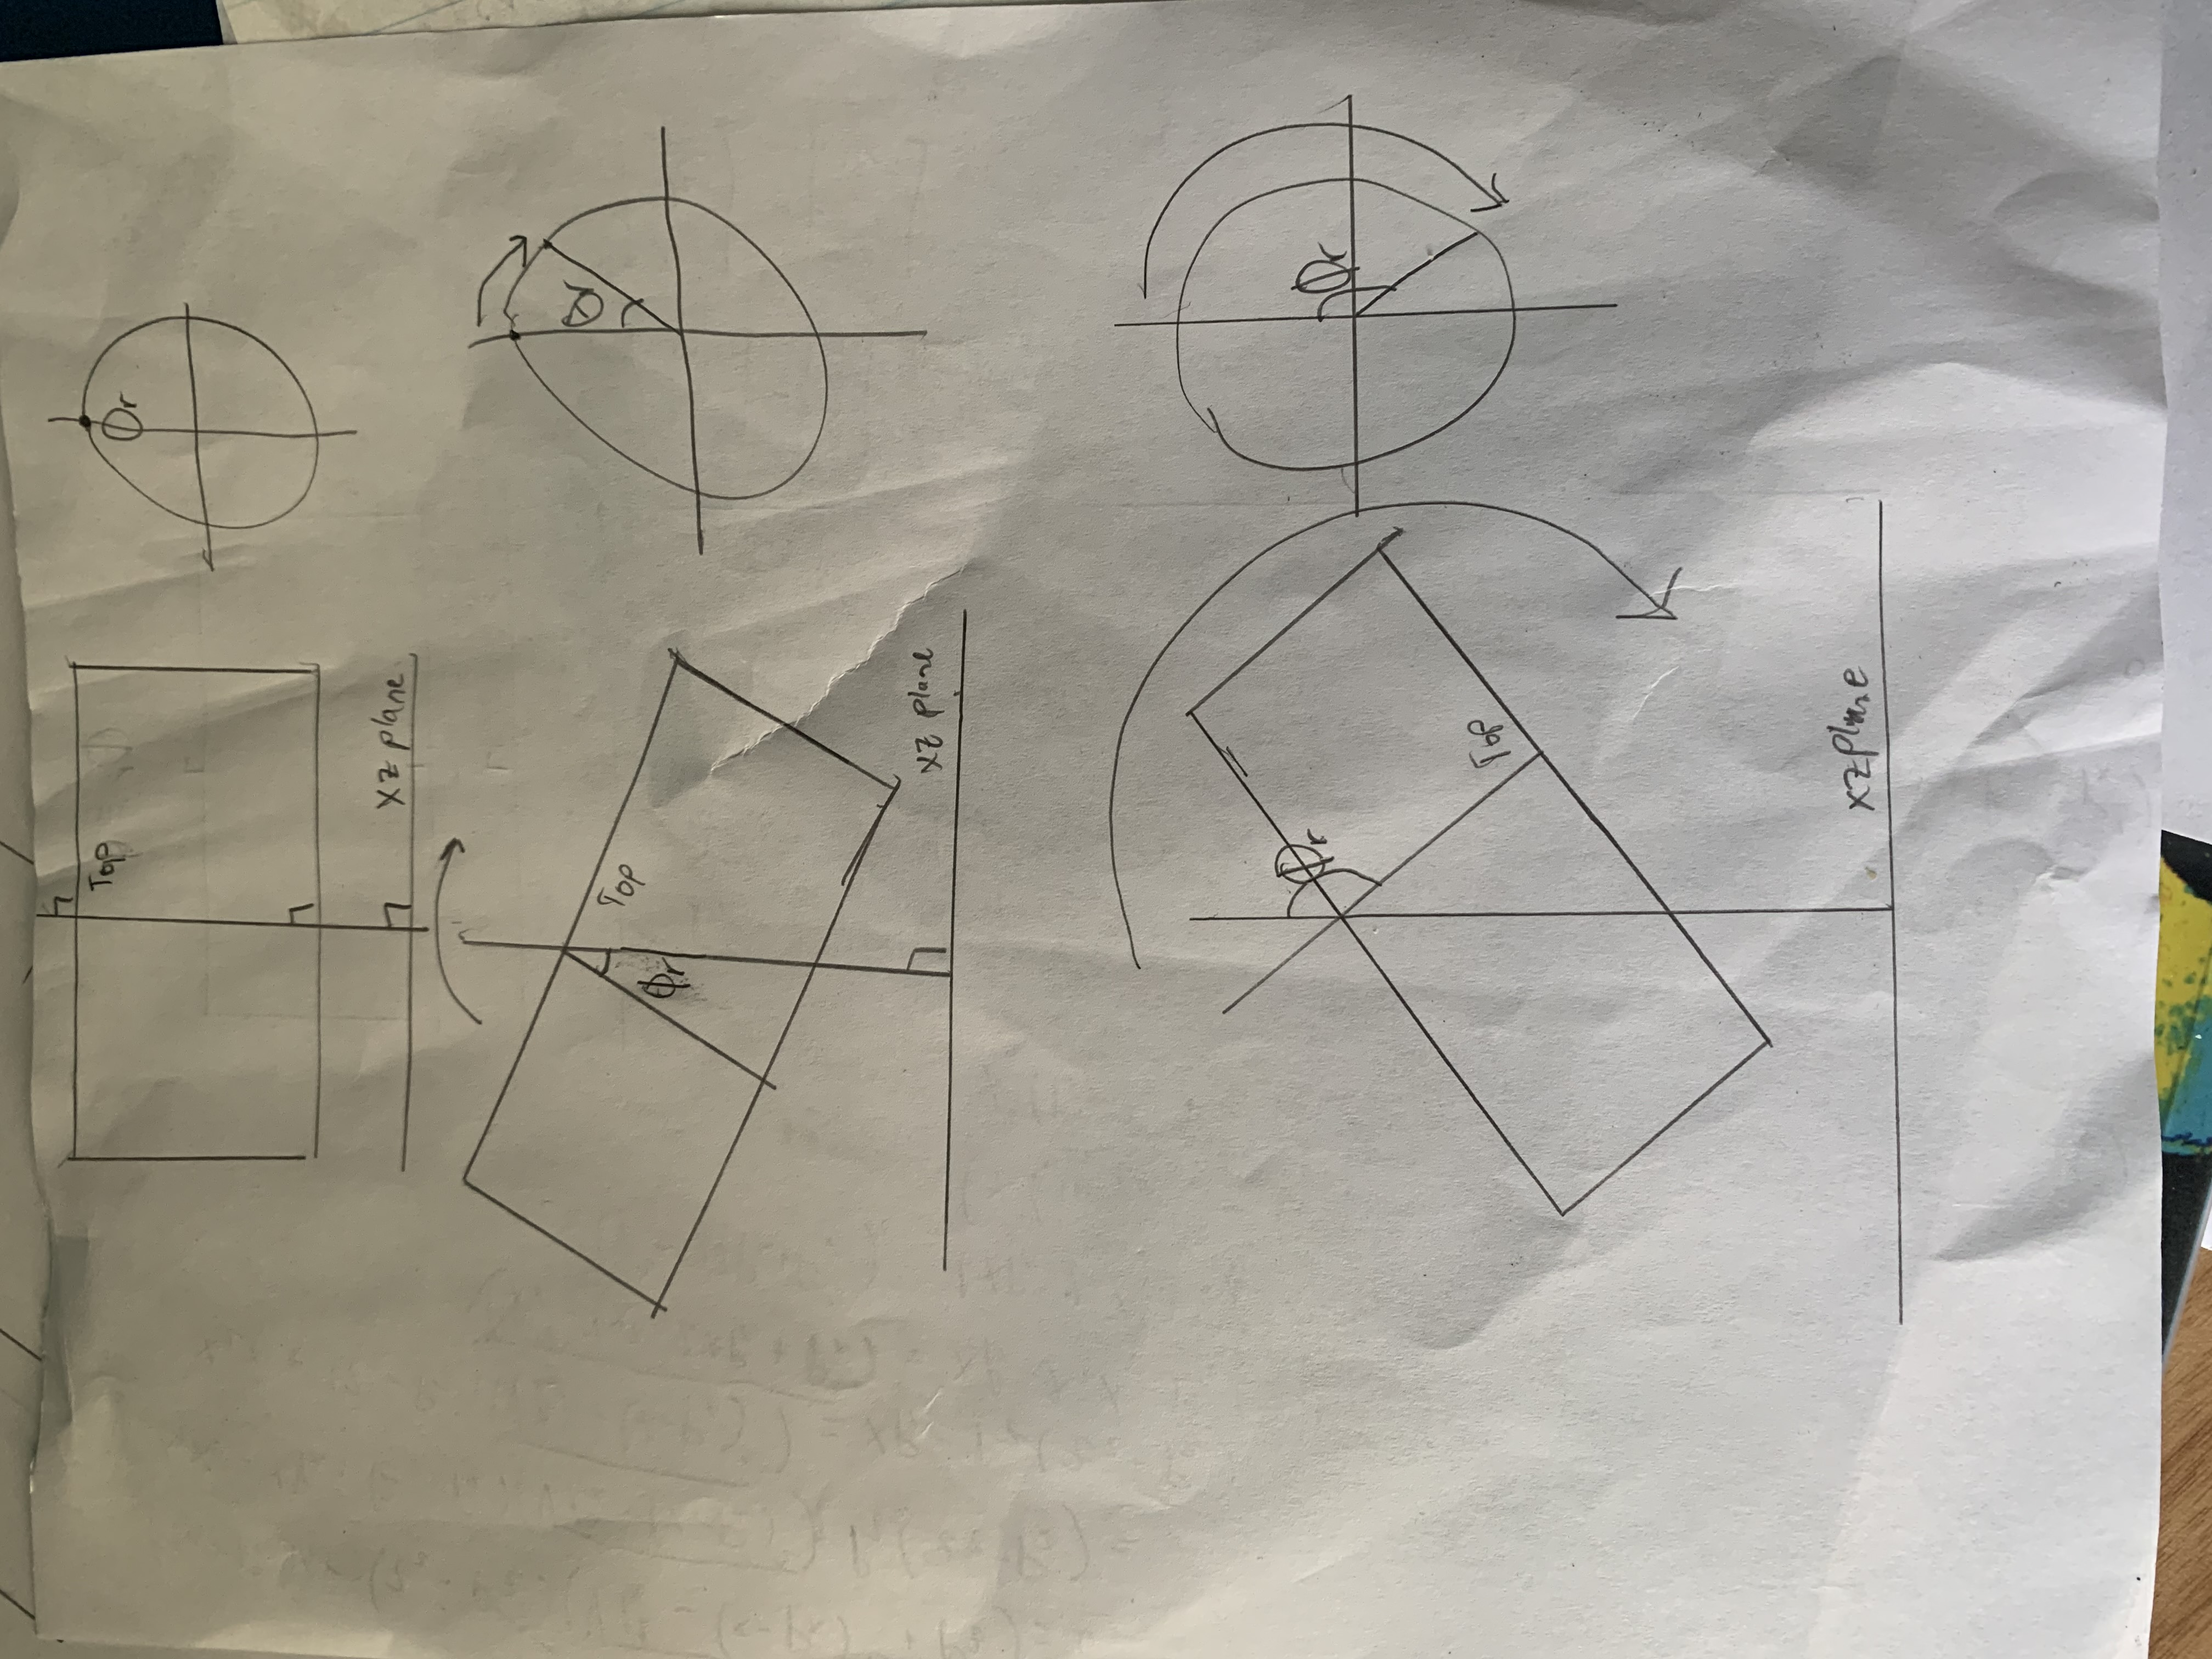 Top
Φr
xz plane
Top
Φr
θr
xz plane
Φr
Φr
Top
xz plane